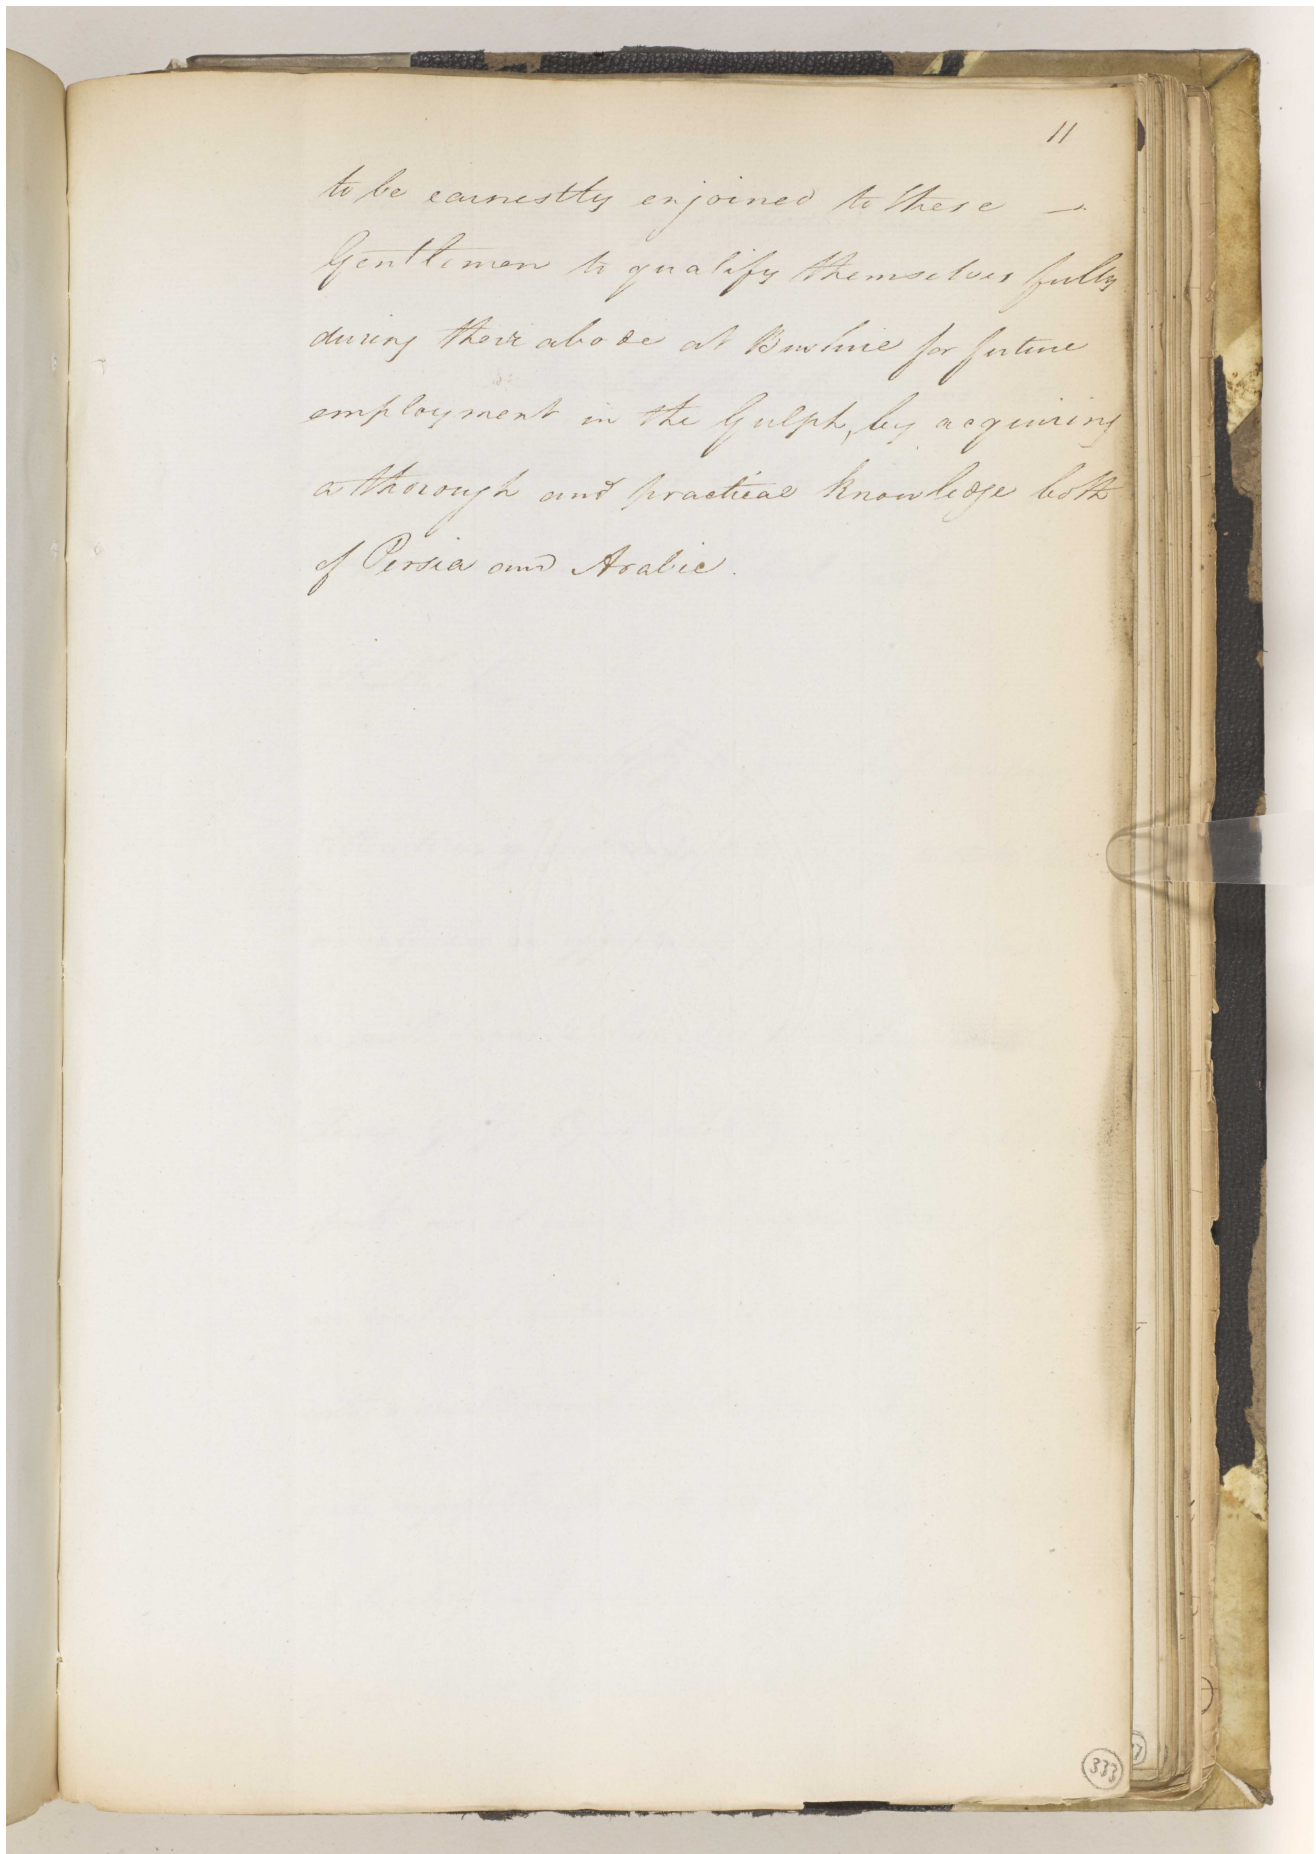 11
to be earnestly enjoined to these —
Gentlemen to qualify themselves fully
during their abode at Bushire for future
employment in the Gulph, by acquiring
a thorough and practical knowledge both
of Persia and Arabic.
333